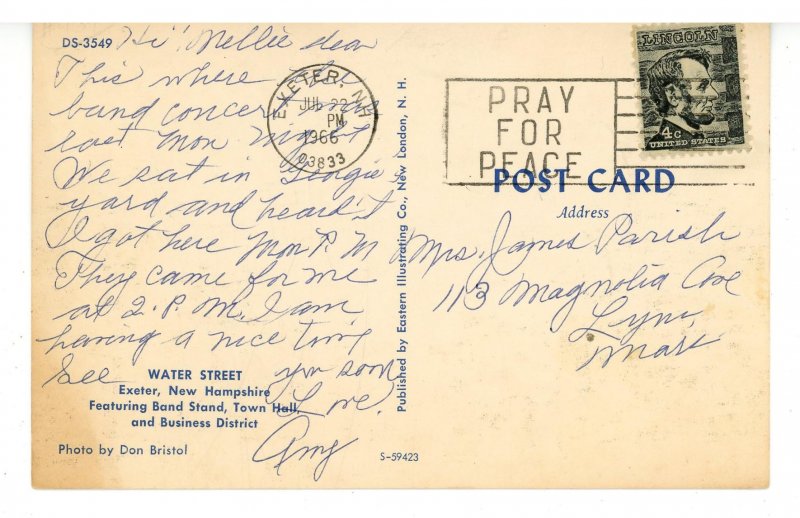 DS-3549
Hi" Nellie dear
This where the
band concert was
last Mon night
We sat in Georgie
yard and heard it
I got here Mon P. M
They came for me
at 2. P. M. I am
having a nice time
See you soon
Love.
Amy
WATER STREET
Exeter, New Hampshire
Featuring Band Stand, Town Hall,
and Business District
Photo by Don Bristol
S-59423
Published by Eastern Illustrating Co., New London, N. H.
EXETER, N.H.
JUL 22
PM
1966
03833
PRAY
FOR
PEACE
LINCOLN
4c
UNITED STATES
POST CARD
Address
Mrs. James Parish
113 Magnolia Ave
Lynn,
Mass.